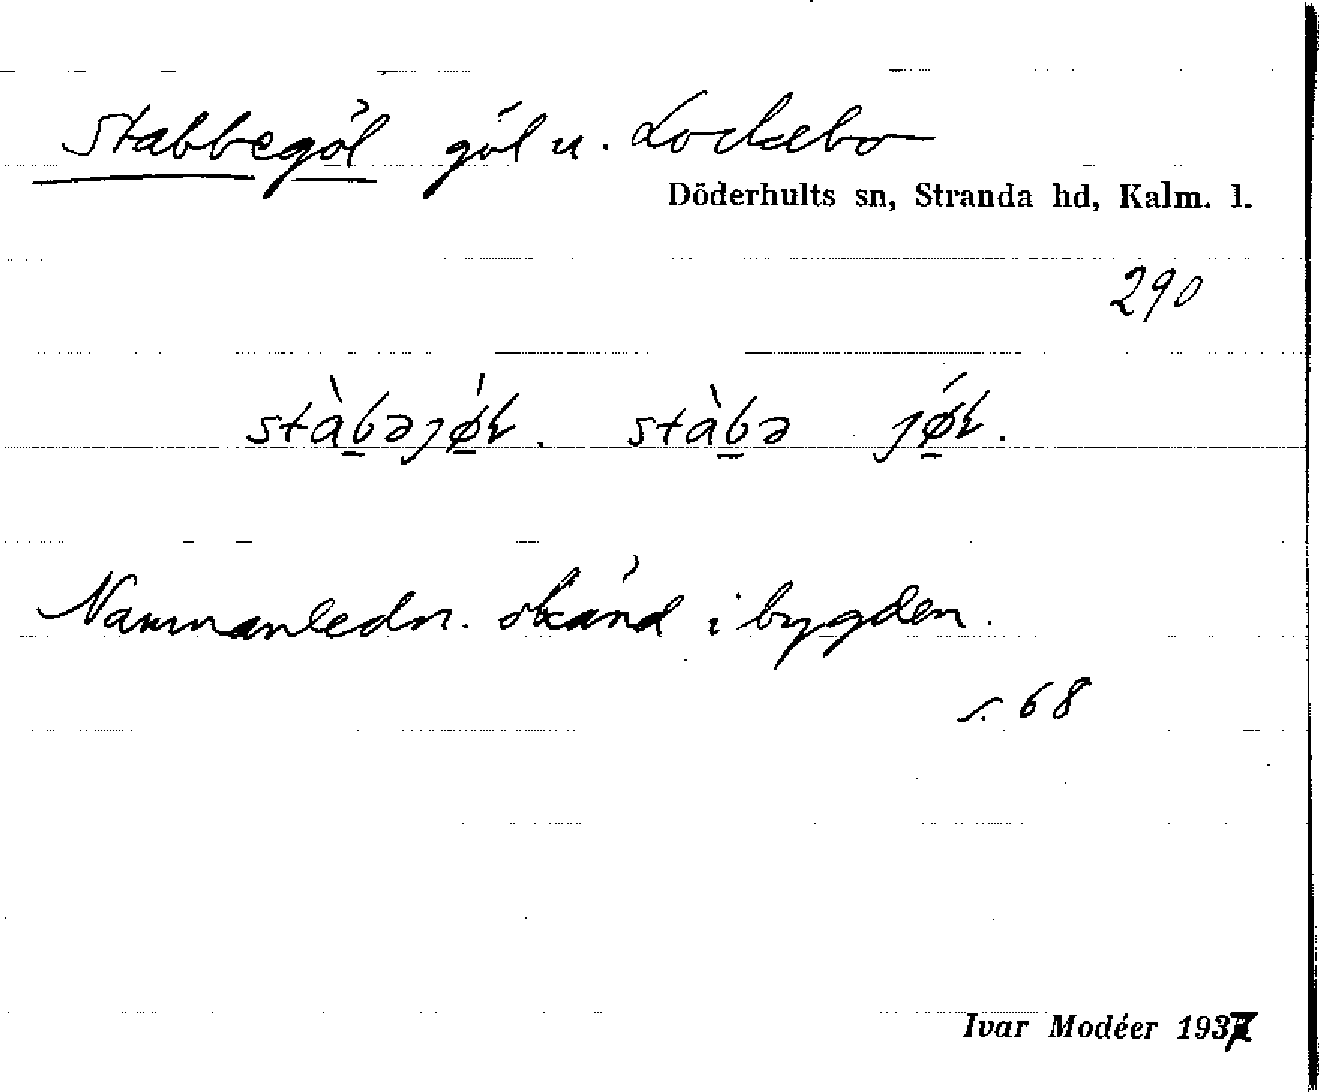 Stabbegöl göl u. Lockebo
Döderhults sn, Stranda hd, Kalm. l.
290
stàbəȷøɫ. stàbə ȷǿɫ.
Namnanledn. okänd i bygden.
s. 68
Ivar Modéer 1937